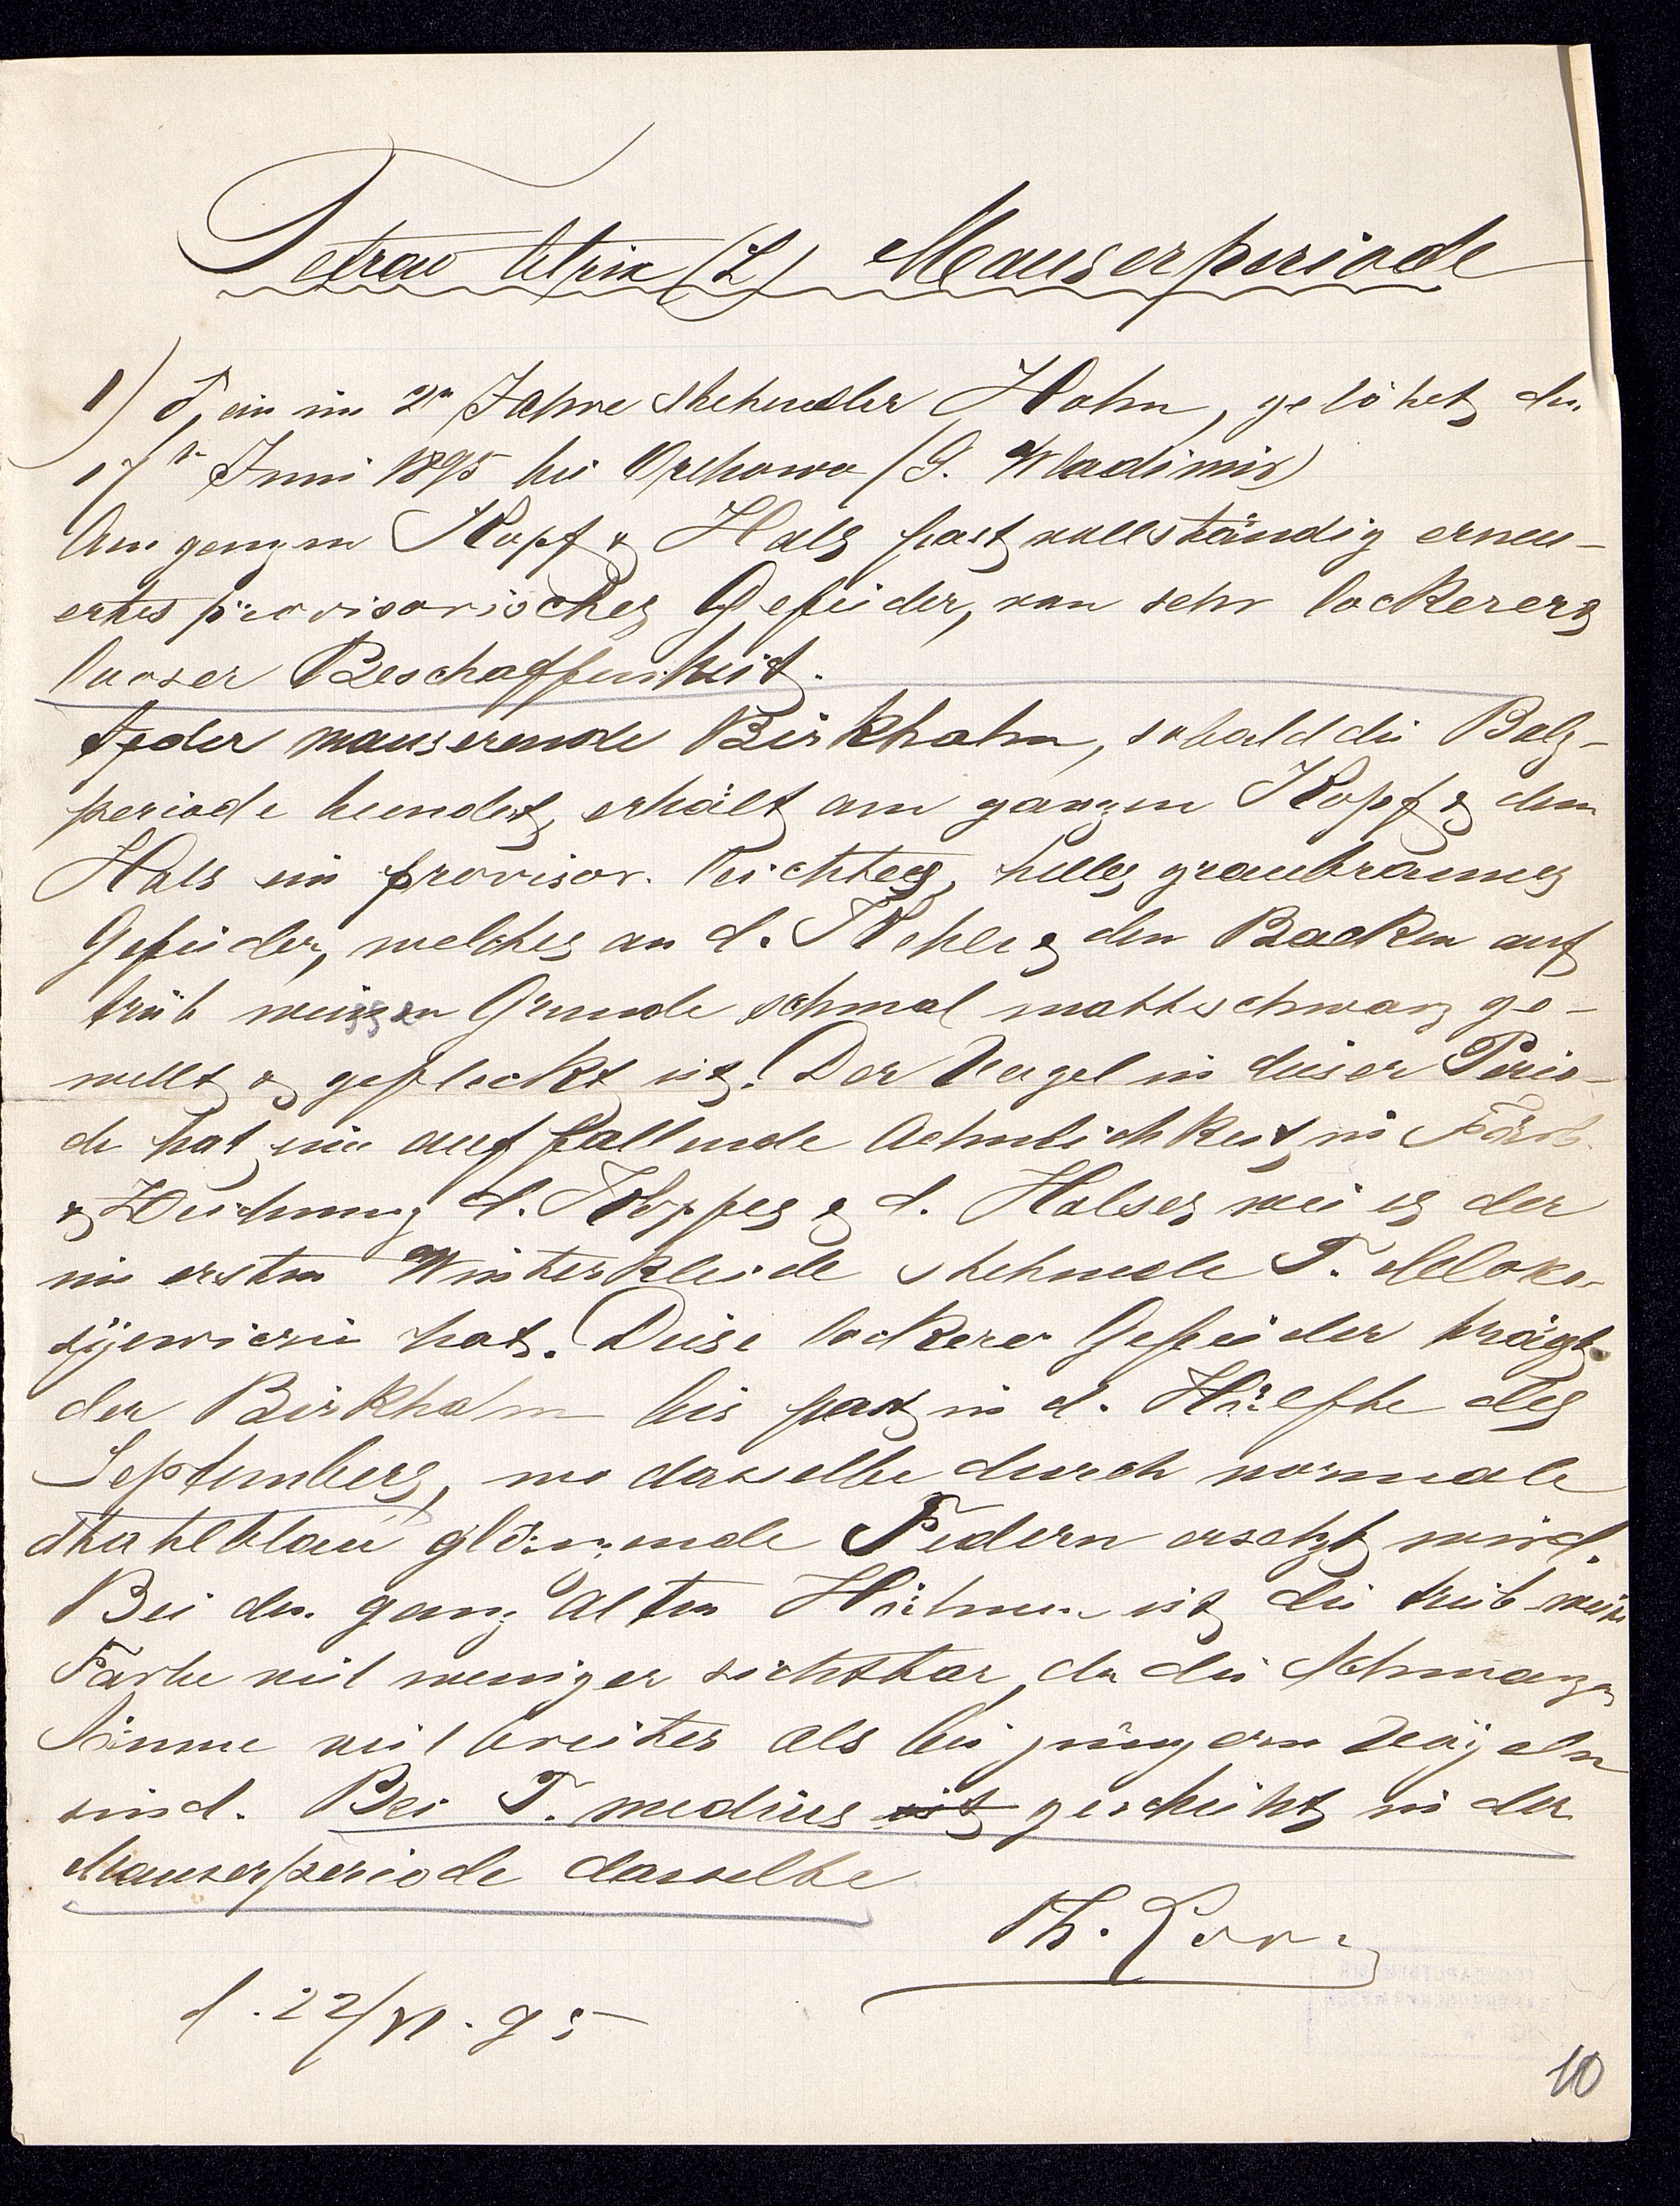 Tetrao tetrix (L) Mauserperiode
1) ♂, ein im 2n Jahre stehender Hahn, getötet den
17n Juni 1895 bei Orechowo (G. Wladimir)
Am ganzen Kopf & Hals fast vollständig erneu-
ertes provisorisches Gefieder, von sehr lockerer &
looser Beschaffenheit.
Jeder mausernde Birkhahn, sobald die Balz-
periode beendet, erhält am ganzen Kopf & dem
Hals ein provisor. leichtes, helles graubraunes
Gefieder, welches an d. Kehle & den Backen auf
trüb weissen Grunde schmal mattschwarz ge-
wellt & gefleckt ist! Der Vogel in dieser Perio-
de hat eine auffallende Aehnlichkeit in Färb.
& Zeichnung d. Kopfes & d. Halses wie es der
im ersten Winterkleide stehende T. Mloko-
sijewiczii hat. Diese lockere Gefieder trägt
der Birkhahn bis fast in d. Hälfte des
Septembers, wo dasselbe durch normale
stahlblau glänzende Federn ersetzt wird.
Bei den ganz alten Hähnen ist die trüb weisse
Farbe viel weniger sichtbar, da die schwarzen
Säume viel breiter als bei jüngern Vögeln
sind. Bei T. medius ist geschieht in der
Mauserperiode dasselbe
Th. Lorenz
d. 22/VI. 95
10